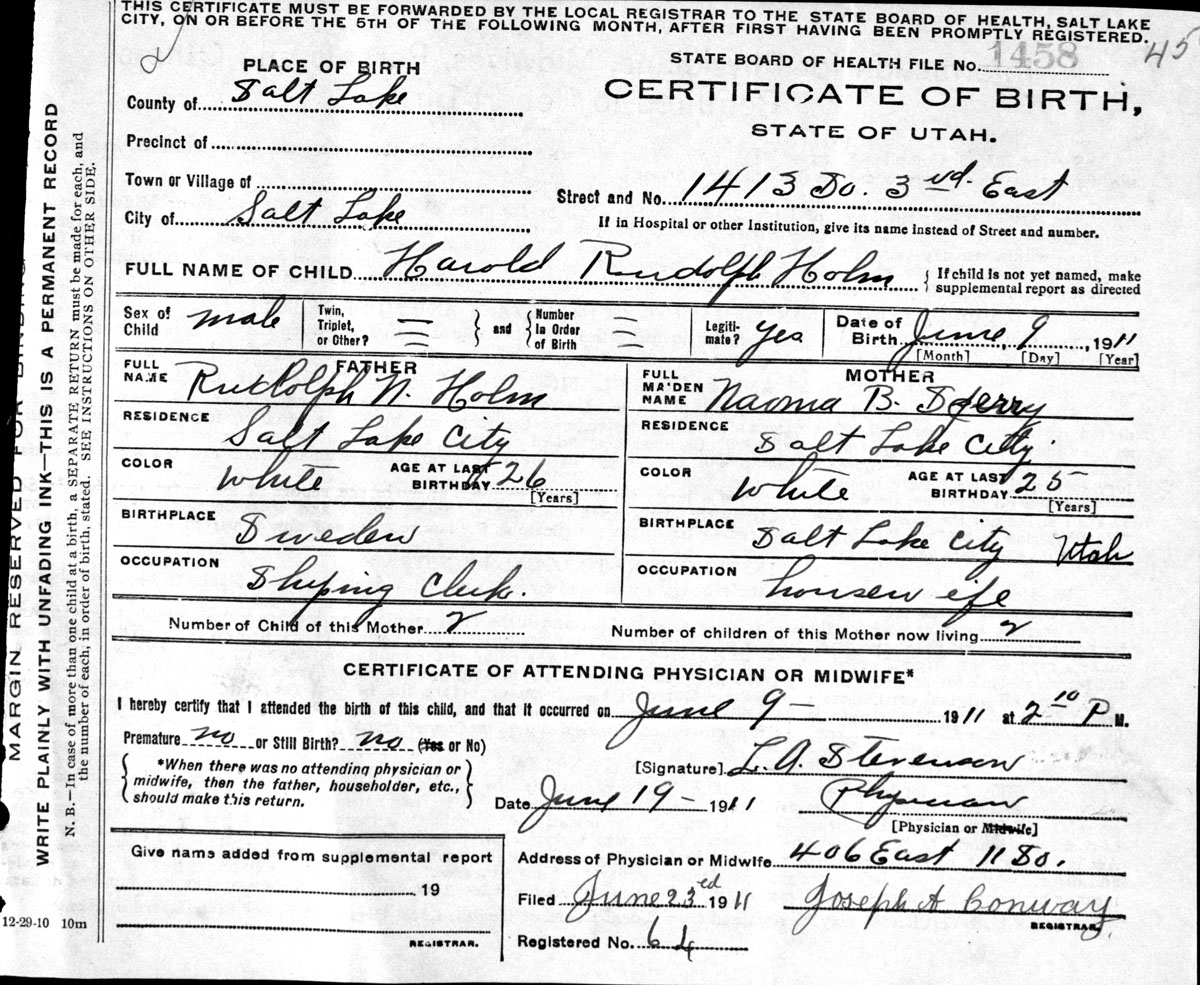 THIS CERTIFICATE MUST BE FORWARDED BY THE LOCAL REGISTRAR TO THE STATE BOARD OF HEALTH, SALT LAKE
CITY, ON OR BEFORE THE 5TH OF THE FOLLOWING MONTH, AFTER FIRST HAVING BEEN PROMPTLY REGISTERED.
45
STATE BOARD OF HEALTH FILE No. 1458
CERTIFICATE OF BIRTH,
STATE OF UTAH.
PLACE OF BIRTH
County of Salt Lake
Precinct of
Town or Village of
City of Salt Lake
Street and No. 1413 So. 3rd East
If in Hospital or other Institution, give its name instead of Street and number.
FULL NAME OF CHILD Harold Rudolph Holm { If child is not yet named, make
supplemental report as directed
Sex of Child male
Twin, Triplet, or Other? } and { Number In Order of Birth
Legiti-mate? yes
Date of Birth June 9 1911
[Month] [Day] [Year]
FATHER
FULL NAME Rudolph N. Holm
RESIDENCE Salt Lake City
COLOR White AGE AT LAST BIRTHDAY 26 [Years]
BIRTHPLACE Sweden
OCCUPATION Shiping Clerk.
MOTHER
FULL MAIDEN NAME Naoma B. Sperry
RESIDENCE Salt Lake City
COLOR White AGE AT LAST BIRTHDAY 25 [Years]
BIRTHPLACE Salt Lake City Utah
OCCUPATION housewife
Number of Child of this Mother 2 Number of children of this Mother now living 2
CERTIFICATE OF ATTENDING PHYSICIAN OR MIDWIFE*
I hereby certify that I attended the birth of this child, and that it occurred on June 9 – 1911 at 2 10 P. M.
Premature no or Still Birth? no (Yes or No)
{ *When there was no attending physician or
midwife, then the father, householder, etc.,
should make this return. }
[Signature] L. A. Stevenson
Date June 19 – 1911 Physician
[Physician or Midwife]
Give name added from supplemental report
19
REGISTRAR.
Address of Physician or Midwife 406 East 11 So.
Filed June 23ed 1911 Joseph A Conway
REGISTRAR.
Registered No. 64
12-29-10 10m
MARGIN RESERVED FOR BINDING.
WRITE PLAINLY WITH UNFADING INK—THIS IS A PERMANENT RECORD
N. B.—In case of more than one child at a birth, a SEPARATE RETURN must be made for each, and
the number of each, in order of birth, stated. SEE INSTRUCTIONS ON OTHER SIDE.